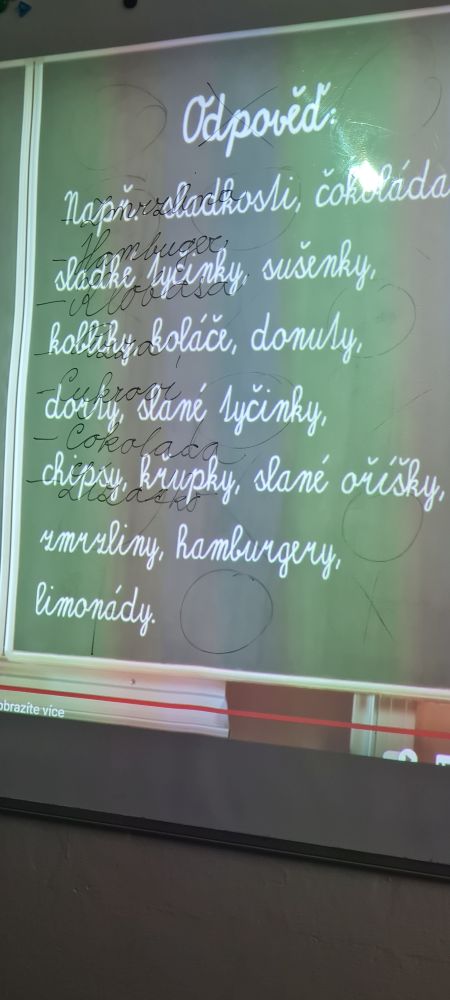 Odpověď:
Např. sladkosti, čokoláda
sladké tyčinky, sušenky,
koblihy, koláče, donuty,
dorty, slané tyčinky,
chipsy, křupky, slané oříšky,
zmrzliny, hamburgery,
limonády.
- Zmrzlina
- Hamburger,
- Klobása
- Pizza,
- Cukroví
- Čokoláda
- Lízátko
obrazíte více